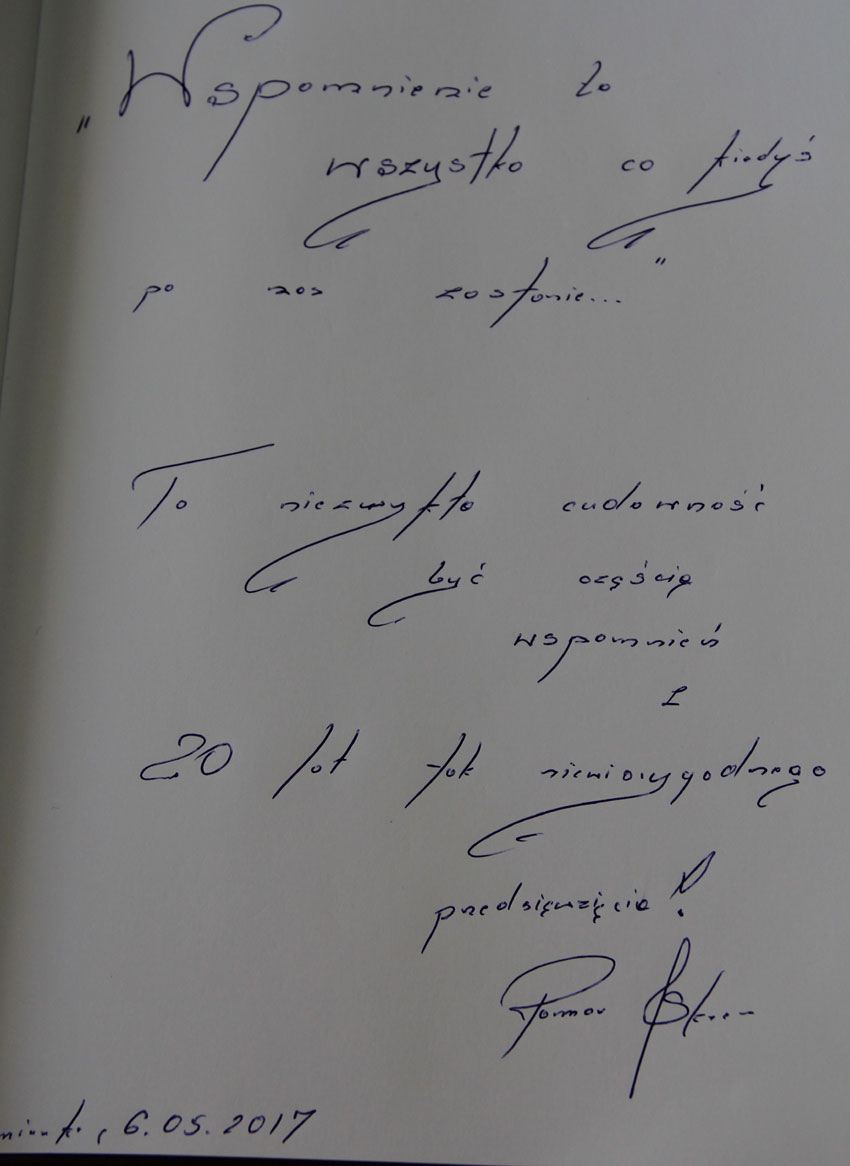 „Wspomnienie to
wszystko co kiedyś
po nas zostanie..."
To niezwykła cudowność
być częścią
wspomnień
z
20 lat tak niewiarygodnego
przedsięwzięcia!
6.05.2017